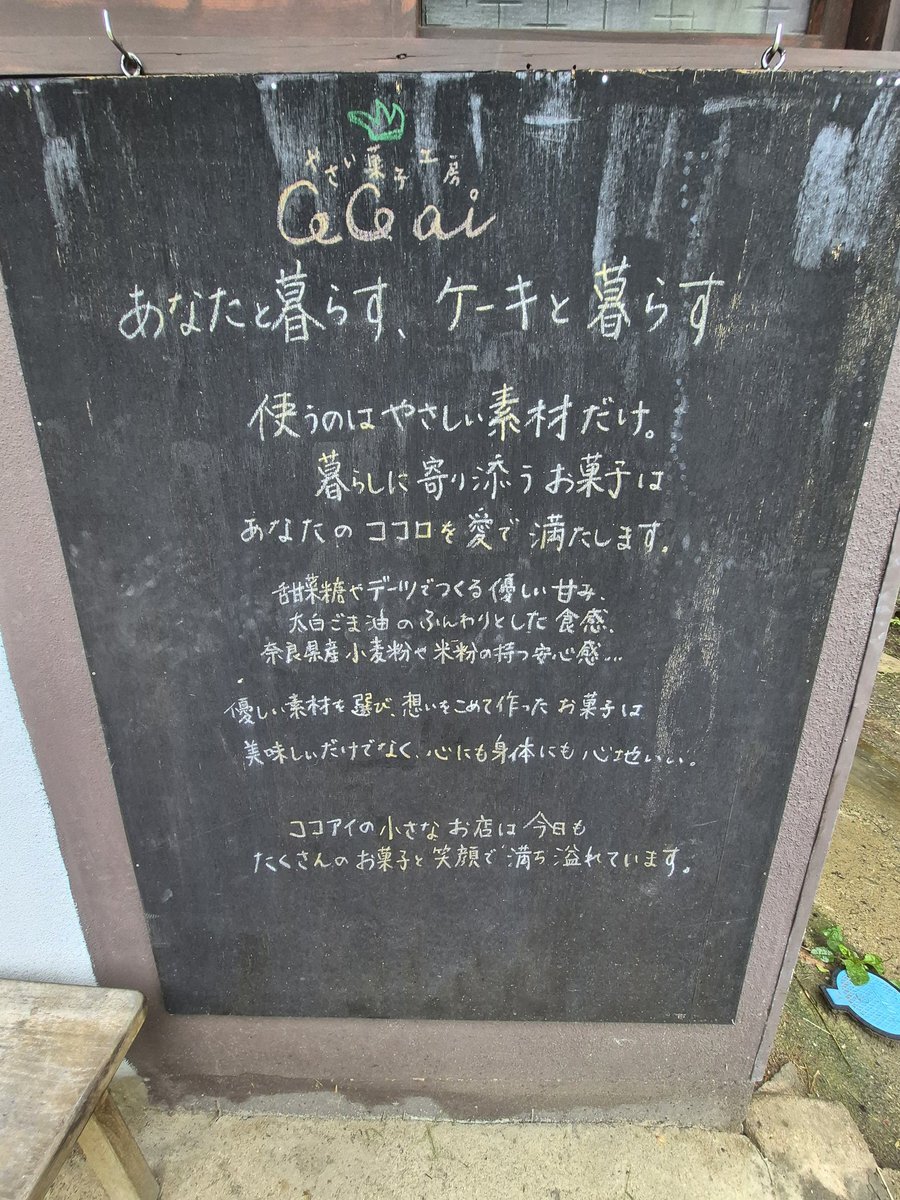 やさい菓子工房
CoCo ai
あなたと暮らす、ケーキと暮らす
使うのはやさしい素材だけ。
暮らしに寄り添うお菓子は
あなたのココロを愛で満たします。
甜菜糖やデーツでつくる優しい甘み、
太白ごま油のふんわりとした食感、
奈良県産小麦粉や米粉の持つ安心感…
優しい素材を選び、想いをこめて作ったお菓子は
美味しいだけでなく、心にも身体にも心地いい。
ココアイの小さなお店は今日も
たくさんのお菓子と笑顔で満ち溢れています。